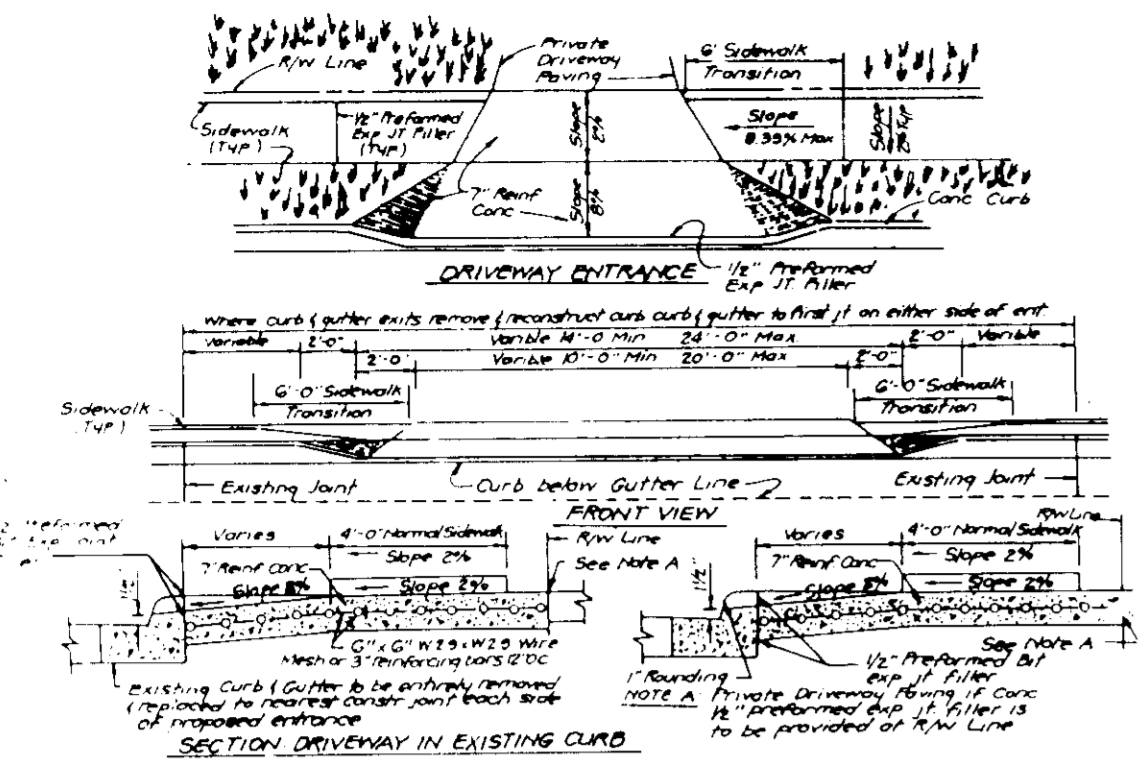 Private
Driveway
Paving
6' Sidewalk
Transition
R/W Line
Sidewalk
(TYP)
1/2" Preformed
Exp JT Filler
(TYP)
Slope
2%
Slope
8.33% Max
Slope
2% Typ
7" Reinf
Conc
Slope
8%
Conc Curb
DRIVEWAY ENTRANCE
1/2" Preformed
Exp JT. Filler
Where curb & gutter exits remove & reconstruct curb curb & gutter to first jt on either side of ent.
Variable
2'-0"
Varible 14'-0 Min 24'-0" Max
2'-0"
Variable
2'-0"
Varible 10'-0" Min 20'-0" Max
2'-0"
6'-0" Sidewalk
Transition
6'-0" Sidewalk
Transition
Sidewalk
(TYP)
Existing Joint
Curb below Gutter Line
Existing Joint
FRONT VIEW
Preformed
Exp Joint
Varies
4'-0" Normal Sidewalk
Slope 2%
R/W Line
See Note A
7" Reinf Conc
Slope 8%
Slope 2%
6" x 6" W2.9 x W2.9 Wire
Mesh or 3" reinforcing bars 12" OC
Existing Curb & Gutter to be entirely removed
& replaced to nearest constr joint each side
of proposed entrance
SECTION DRIVEWAY IN EXISTING CURB
Varies
4'-0" Normal Sidewalk
R/W Line
Slope 2%
7" Reinf Conc
1 1/2"
Slope 8%
Slope 2%
See Note A
1/2" Preformed Bit
exp jt filler
1" Rounding
NOTE A: Private Driveway Paving if Conc
1/2" preformed exp jt. filler is
to be provided at R/W Line